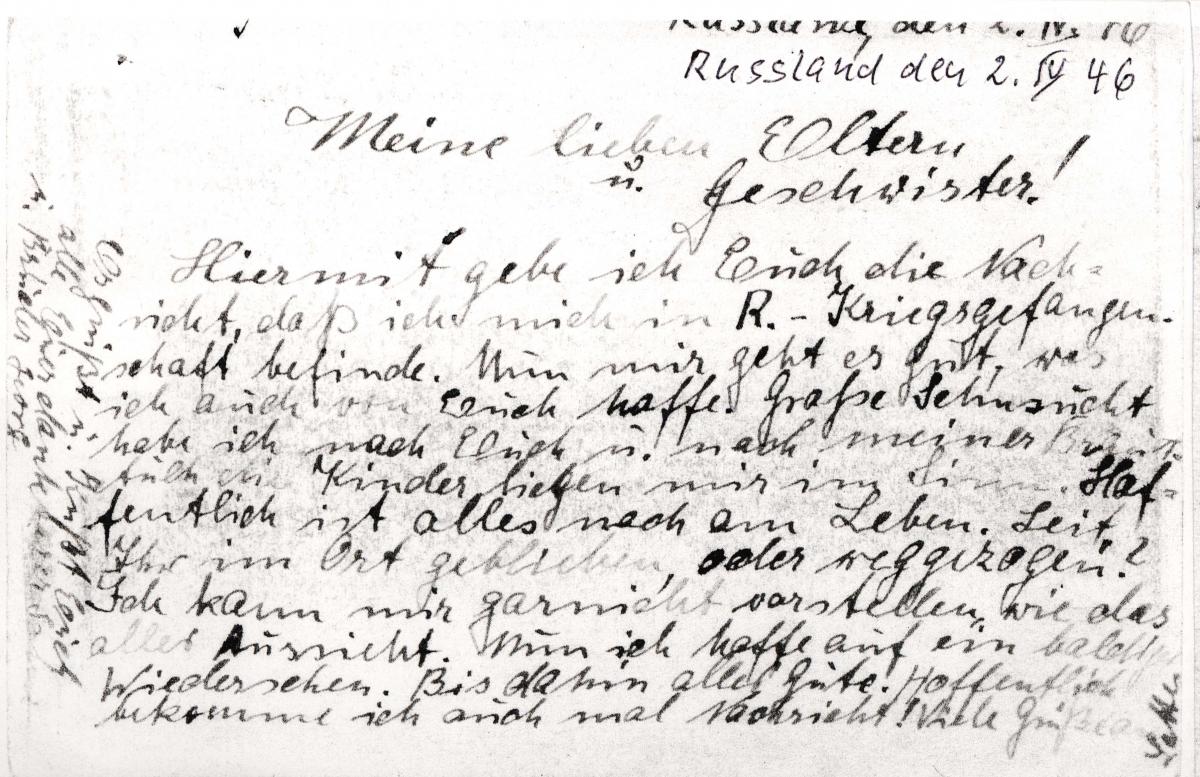 Russland, den 2. IV. 46
Russland den 2. IV 46
Meine lieben Eltern
u. Geschwister!
Hiermit gebe ich Euch die Nach-
richt, daß ich mich in R. - Kriegsgefangen-
schaft befinde. Nun mir geht es gut, was
ich auch von Euch hoffe. Große Sehnsucht
habe ich nach Euch u. nach meiner Braut.
Auch die Kinder liegen mir im Sinn. Hof-
fentlich ist alles noch am Leben. Seit
Ihr im Ort geblieben, oder weggezogen?
Ich kann mir garnicht vorstellen, wie das
alles Aussicht. Nun ich hoffe auf ein baldiges
Wiedersehen. Bis dahin alles Gute. Hoffentlich
bekomme ich auch mal Nachricht! Viele Grüße an
Es grüßt u. küßt Euch
alle Euer dankbarer
u. Bruder Georg